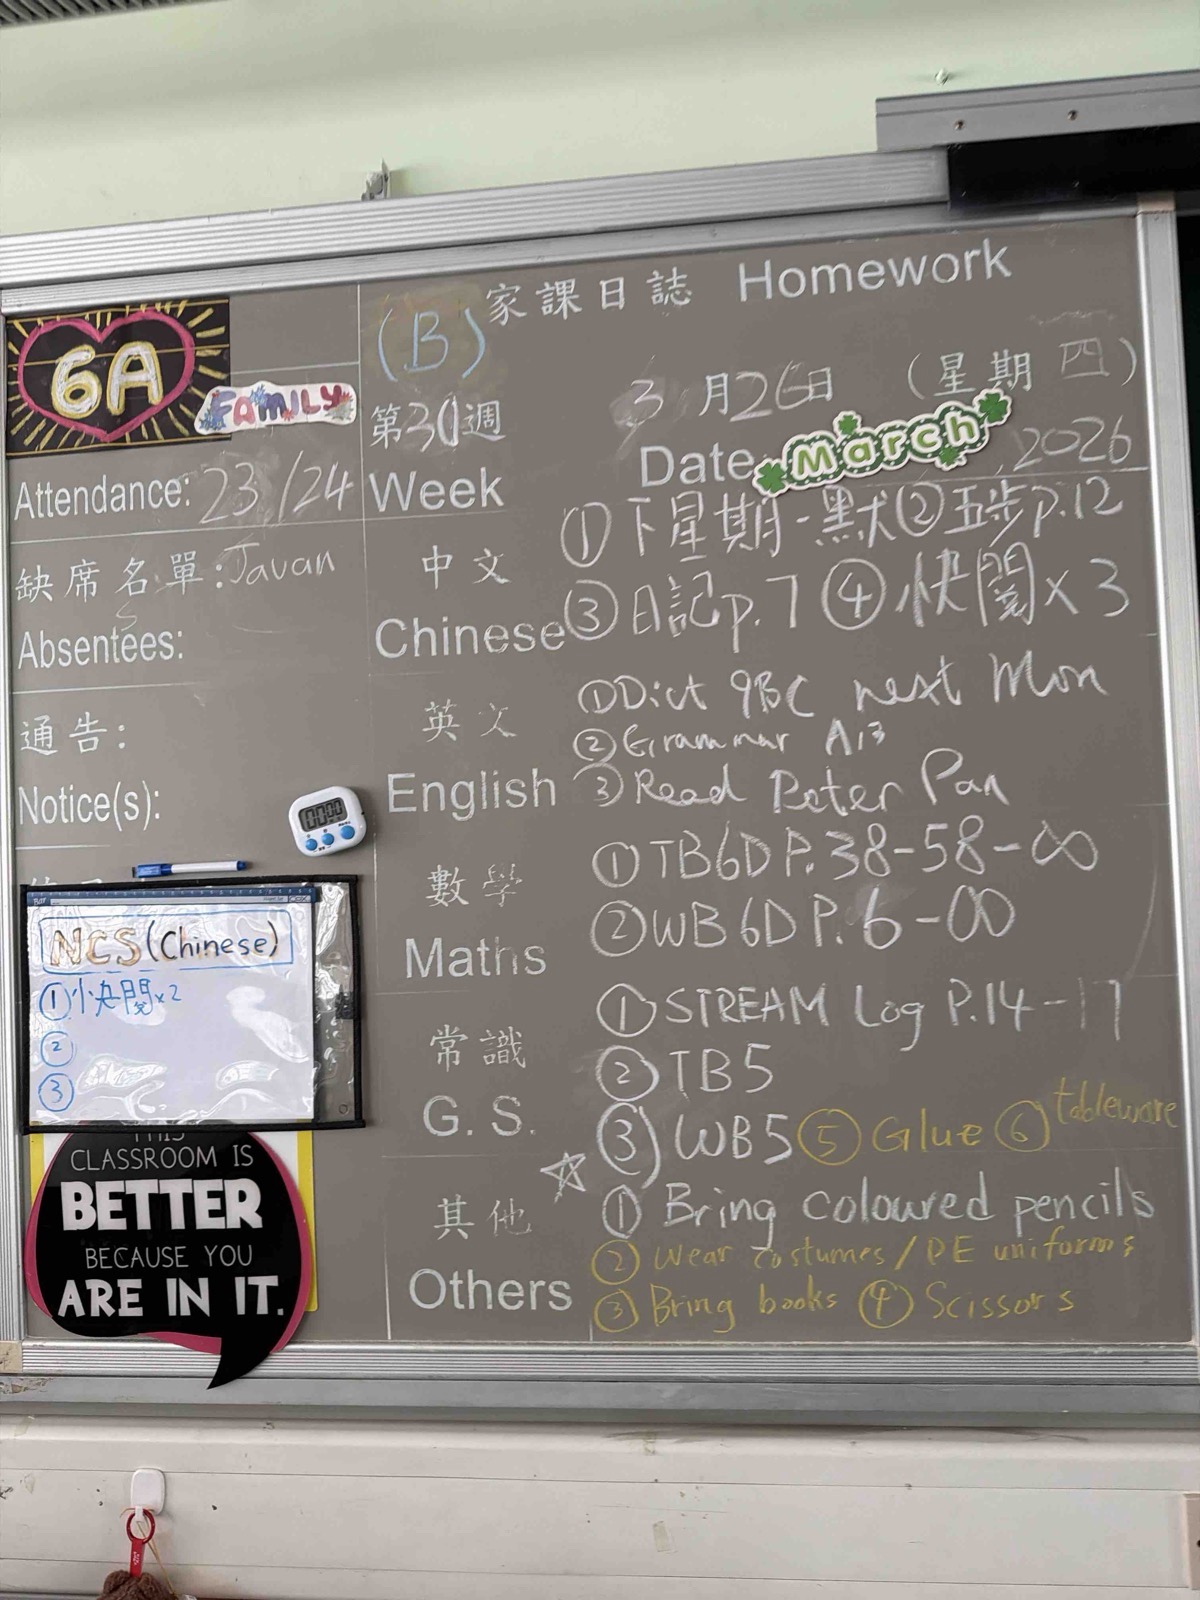 家課日誌 Homework
6A
FAMILY
(B)
第30週
Week
3月26日 (星期四)
Date March, 2026
Attendance: 23/24
缺席名單: Javan
Absentees:
通告:
Notice(s):
中文
Chinese
① 下星期一默 ② 五步p.12
③ 日記p.7 ④ 快閱x3
英文
English
① Dict 9BC next Mon
② Grammar A13
③ Read Peter Pan
數學
Maths
① TB6D P.38-58-∞
② WB6D P.6-∞
常識
G. S.
① STREAM Log P.14-17
② TB5
③ WB5 ⑤ Glue ⑥ tableware
其他
Others
☆ ① Bring coloured pencils
② Wear costumes/PE uniforms
③ Bring books ④ Scissors
NCS (Chinese)
① 快閱x2
②
③
THIS
CLASSROOM IS
BETTER
BECAUSE YOU
ARE IN IT.